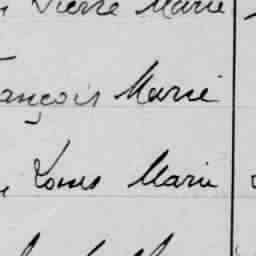 Pierre Marie
François Marie
Louis Marie